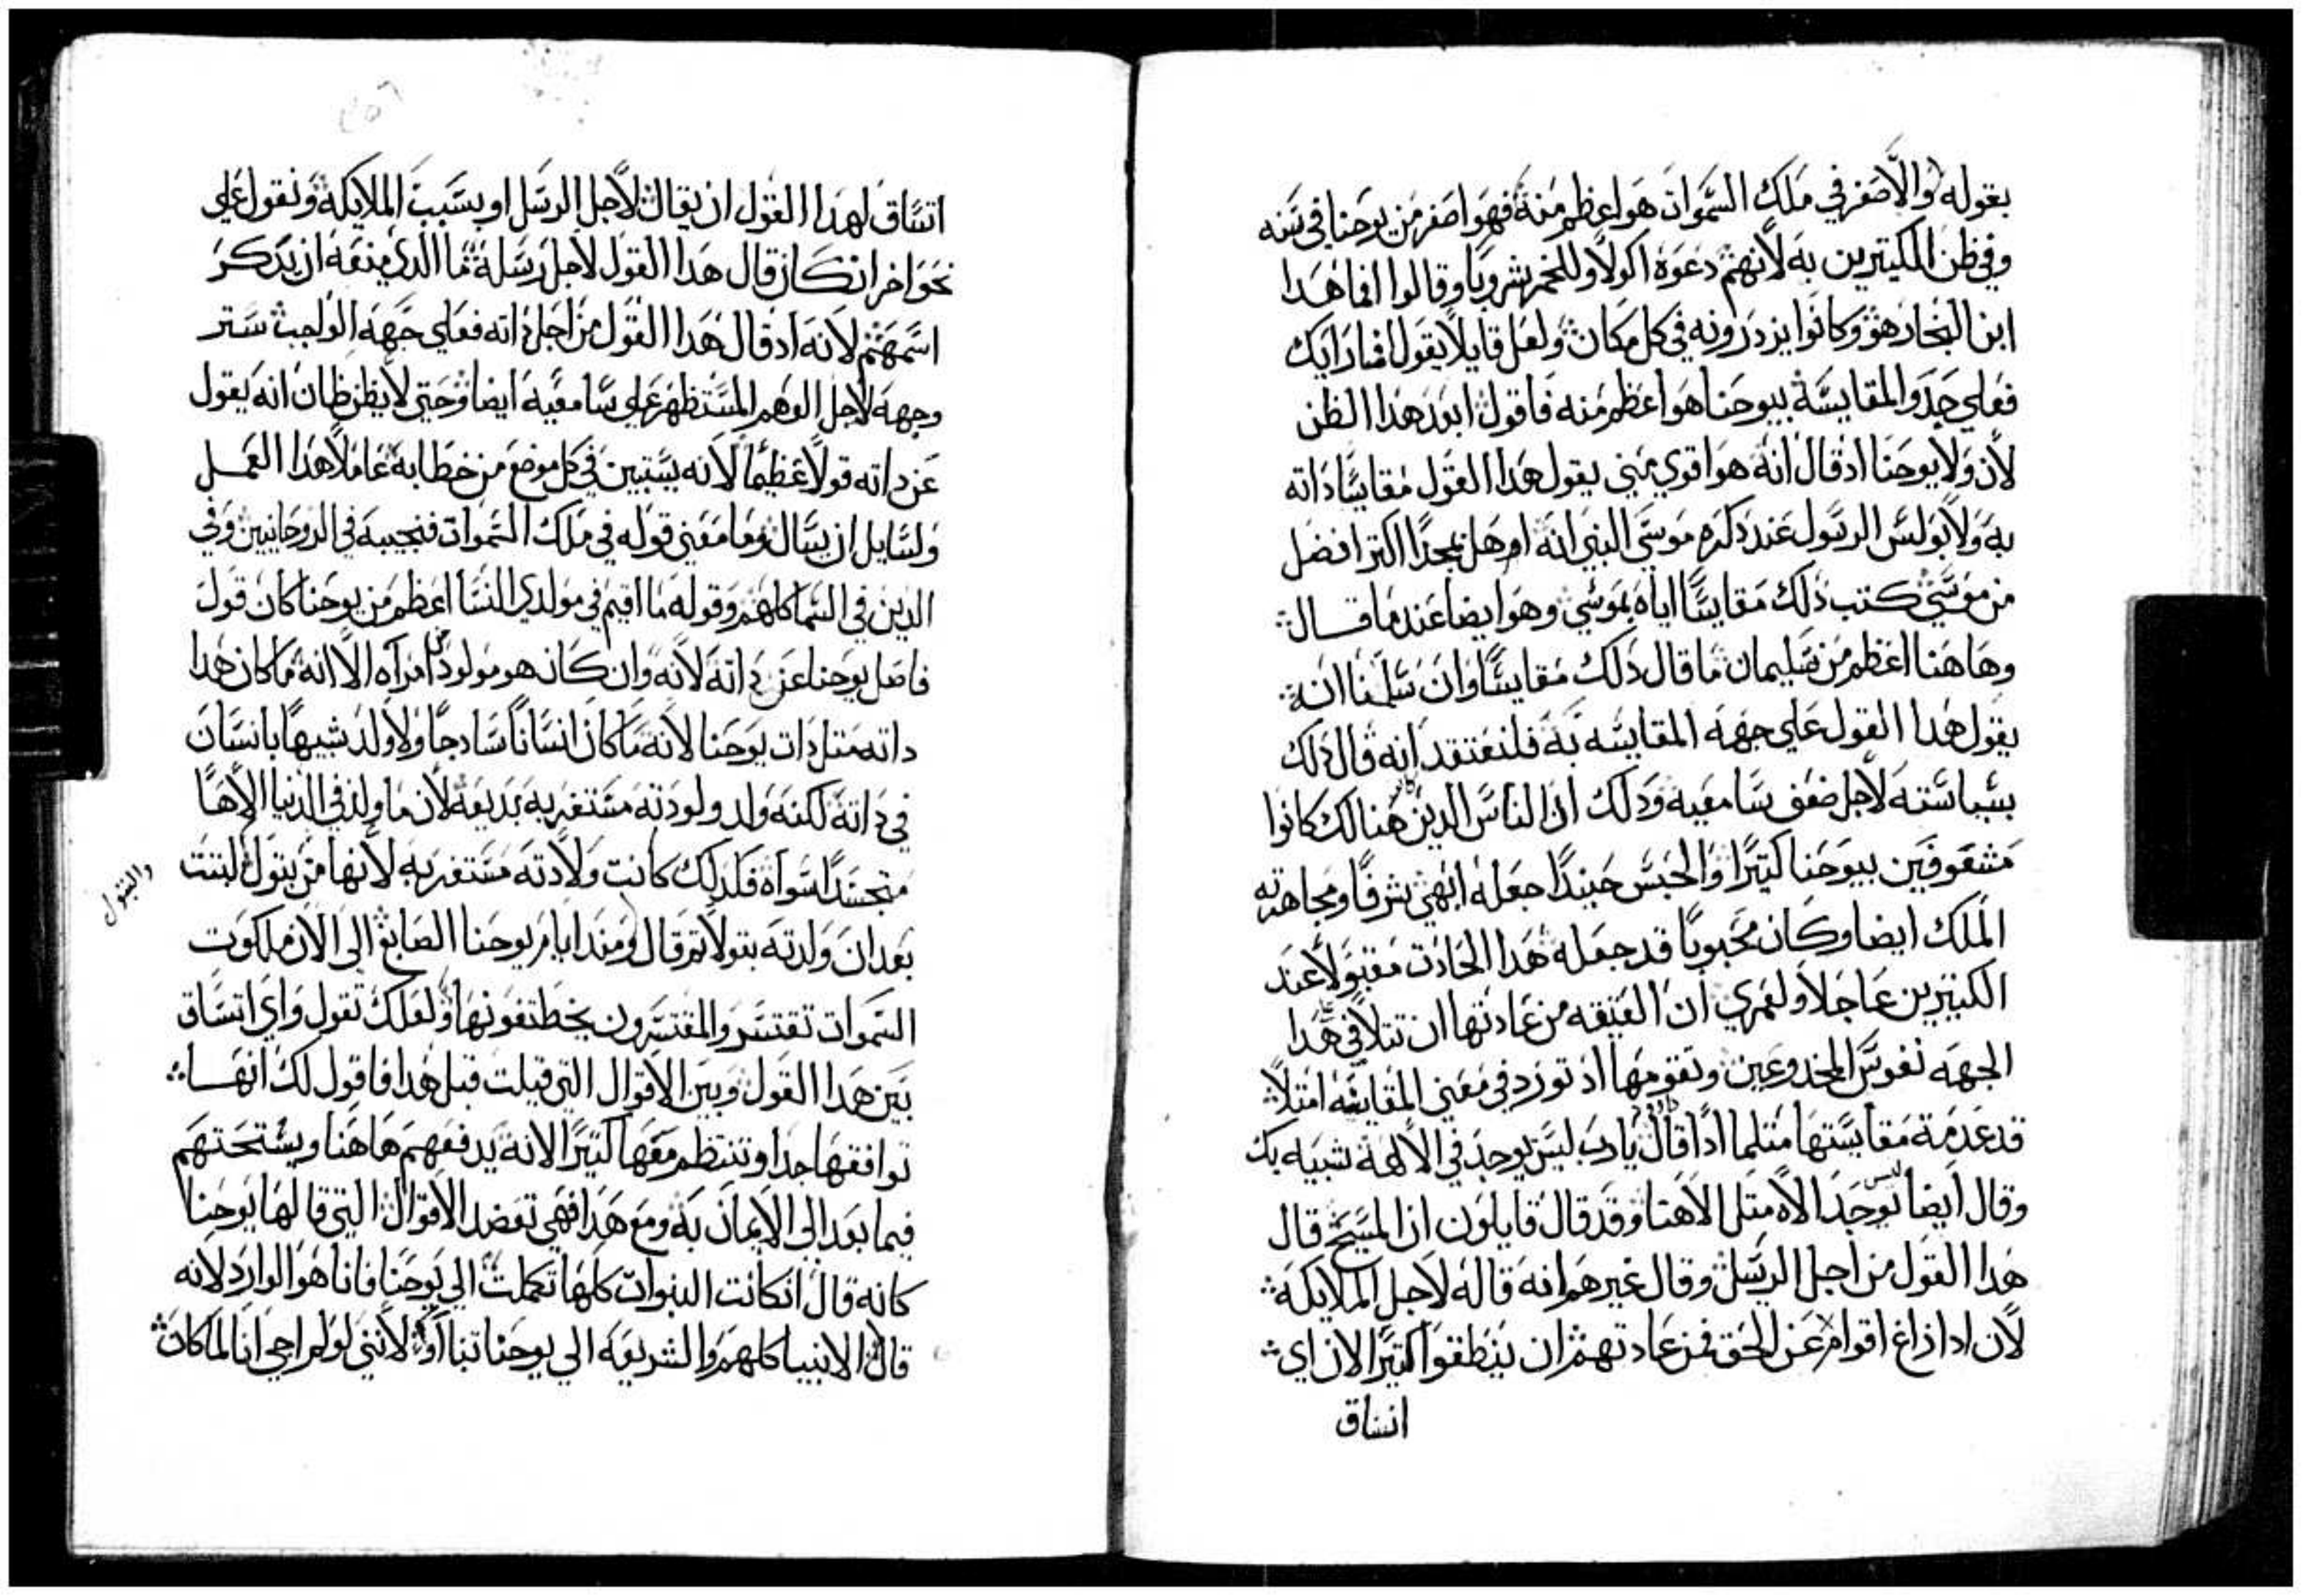 بقوله والاصغر في ملك السموات هو اعظم منه فهو اصغر من يوحنا في سنه
وفي ظن الكتيرين به لانهم دعوه اكولا وللخمر شروبا وقالوا افما هدا
ابن النجار هو وكانوا يزدرونه في كل مكان ولعل قايلا يقول افتارايك
فعلي حدو المقايسة بيوحنا هو اعظم منه فاقول ابعد هدا الظن
لان ولا يوحنا اد قال انه هو اقوي مني يقول هدا القول مقايسا داته
به ولا بولس الرسول عند دكره موسي النبي انه اوهل مجدا اكتر افضل
من موسي كتب دلك مقايسا اياه بموسي وهو ايضا عند ما قال
وهاهنا اعظم من سليمان ما قال دلك مقايسا وان سلمنا انه
يقول هدا القول علي جهه المقايسه به فلنعتقد انه قال دلك
بسياسته لاجل ضعف سامعيه ودلك ان الناس الدين هنالك كانوا
مشغوفين بيوحنا كتيرا والحبس حينيدا جعله ابهي شرفا ومجاهرته
الملك ايضا وكان محبوبا قد جعله هدا الحادت مقبولا عند
الكتيرين عاجلا ولعمري ان العتيقه من عادتها ان تتلافي هدا
الجهه نفوس المخدوعين وتقومها اد تورد في معني المقايسه امتلا
قد عدمة مقايستها متلما ادا قال داود يارب ليس يوجد في الالهة شبيه بك
وقال ايضا ليس يوجد الاه متل الاهنا وقد قال قايلون ان المسيح قال
هدا القول من اجل الرسل وقال غيرهم انه قاله لاجل الملايكة
لان ادا زاغ اقوام عن الحق فمن عادتهم ان ينطقوا كتيرا الان اي
اتساق
اتساق لهدا القول ان يقال لاجل الرسل او بسبب الملايكة ونقول علي
نحو اخر ان كان قال هدا القول لاجل رسلة فما الدي منعه ان يدكر
اسمهم لانه اد قال هدا القول من اجل داته فعلي جهه الواجب ستر
وجهه لاجل الوهم المستظهر علي سامعيه ايضا وحتي لا يظن ظان انه يقول
عن داته قولا عظيما لانه يستبين في كل موضع من خطابه عاملا هدا العمل
ولسايل ان يسال وما معني قوله في ملك السموات فنجيبه في الروحانيين وفي
الدين في السما كلهم وقوله ما اقيم في مولدي النسا اعظم من يوحنا كان قول
فاصل يوحنا عن داته لانه وان كان هو مولود من امراه الا انه ما كان هدا
داته متل دات يوحنا لانه ما كان انسانا سادجا ولا ولد شبيها بانسان
في داته لكنه ولد ولودته مستغربه بديعه لان ما ولد في الدنيا الاها
متجسدا سواه فلدلك كانت ولادته مستغربه لانها من بتول لبتت
والبتول
بعد ان ولدته بتولا تم قال ومند ايام يوحنا الصابغ الي الان ملكوت
السموات تقتسر والمقتسرون يخطتفونها ولعلك تقول واي اتساق
بين هدا القول وبين الاقوال التي قيلت قبل هدا فاقول لك انها
توافقها جدا وتنتظم معها كتيرا لانه يدفعهم هاهنا ويستحتهم
فيما بعد الي الايمان به ومع هدا فهي تعضد الاقوال التي قالها يوحنا
كانه قال ان كانت النبوات كلها تكملت الي يوحنا فانا هو الوارد لانه
قال الانبيا كلهم والشريعه الي يوحنا تنباوا لانني لو لم اجي انا لما كان